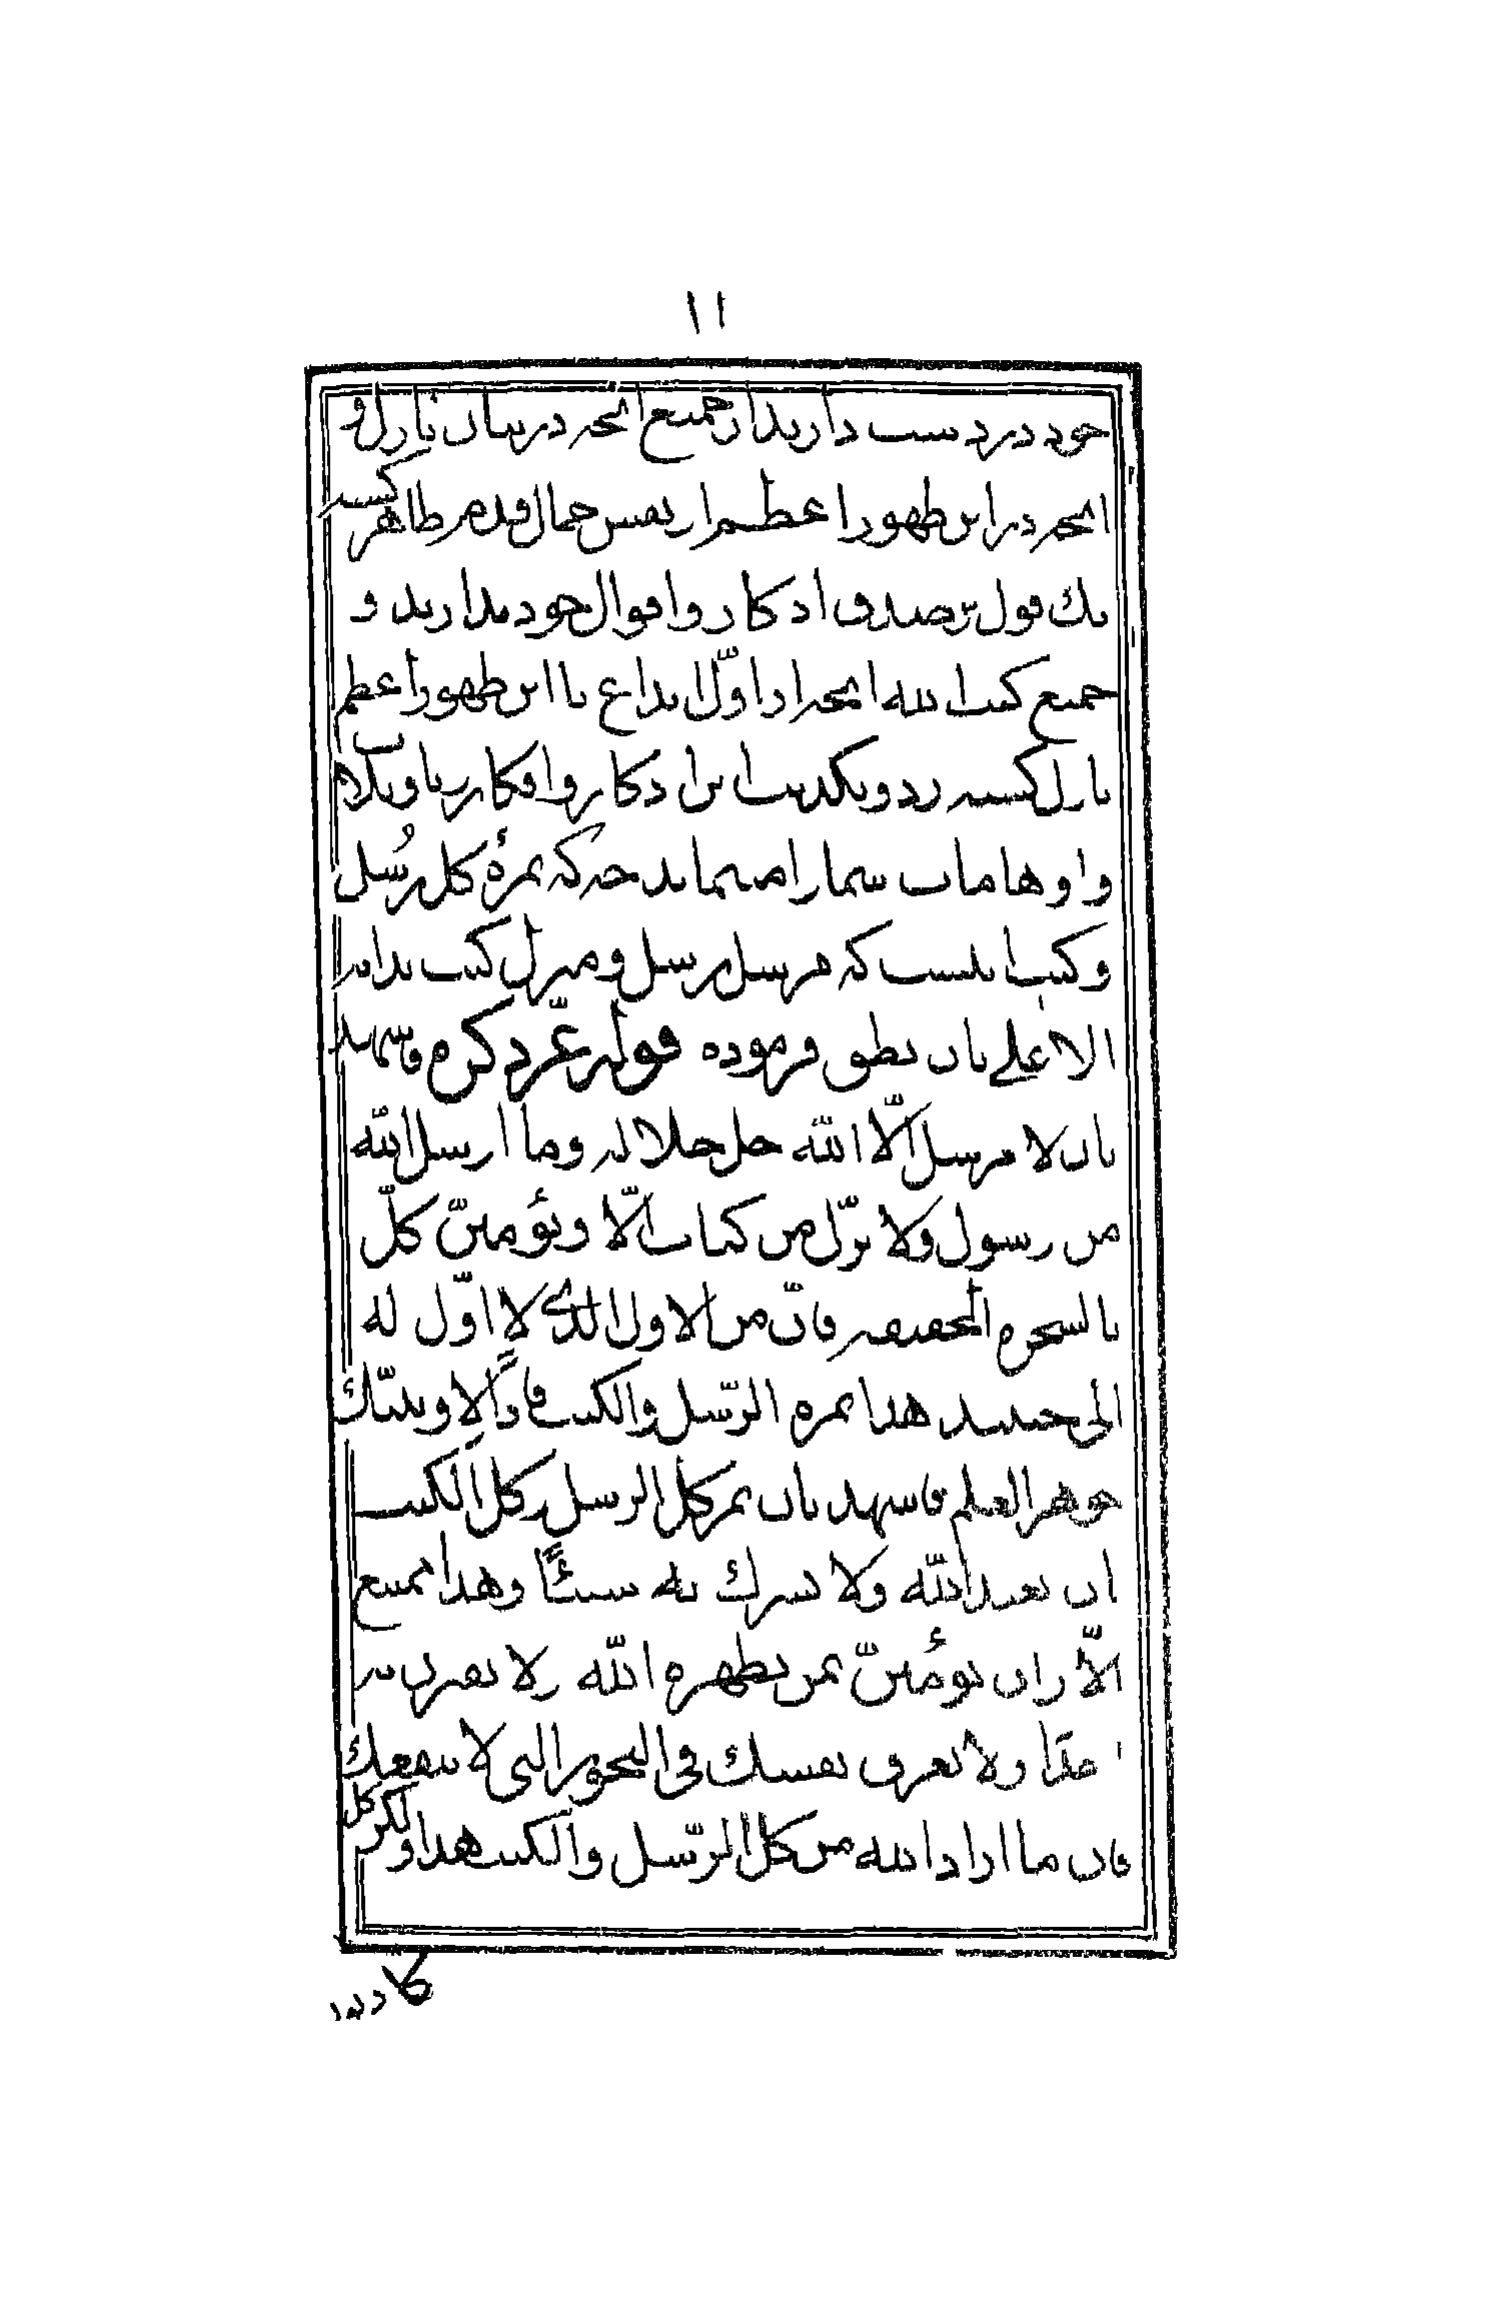 ١١
خود در دست دارید از جمیع آنچه در بیان نازل و
آنچه در این ظهور اعظم از نفس جمال قدم ظاهر گشته
یک قول بر صدق اذکار و اقوال خود ندارید و
جمیع کتب الله آنچه از اول ابداع تا این ظهور اعظم
نازل گشته رد و تکذیب این اذکار و افکار و تاویلات
و اوهامات شما را مینماید چه که ثمرهٔ کل رُسل
و کتب اینست که مرسل رسل و منزل کتب بندائه
الاعلی بان نطق فرموده قوله عزّ ذکره فاشهد
بان لا مرسل الّا الله جل جلاله و ما ارسل الله
من رسول ولا نزّل من کتاب الّا ویؤمننّ کلّ
بالشجرة الحقیقه فانّ من الاول الذی لا اوّل له
الی حینئذ هذا ثمرة الرّسل والکتب
جوهر العلم فاشهد بان ثمر کل الرسل و کل الکتب
ان تعبد الله ولا تشرك به شیئاً وهذا یمتنع
الّا وان تؤمننّ بمن یظهره الله ولا تعرف به
احدا ولا تعرف نفسك فی البحور التی لا ینفعك
فان ما اراد الله من کل الرّسل والکتب هذا ولکن کل